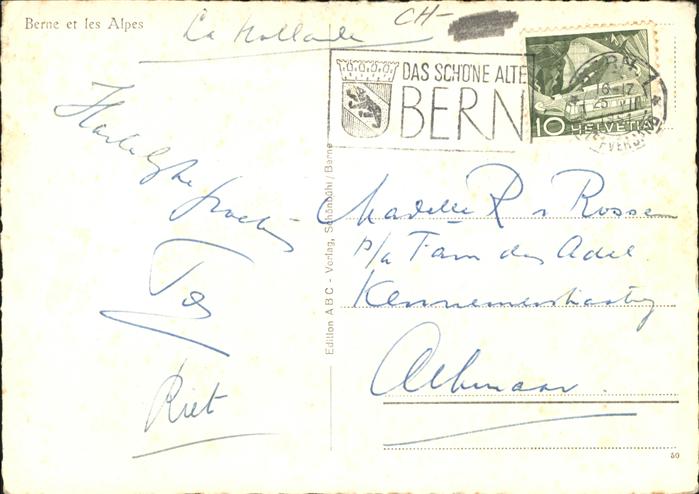 Berne et les Alpes
La Hollande
CH-
DAS SCHÖNE ALTE
BERN
10 HELVETIA
Hartelijke groeten
Riet
Edition ABC - Verlag, Schönbühl/Berne
Madelle R v Rossem
p/a Fam den Adel
Kennemerstraatweg
Alkmaar.
50